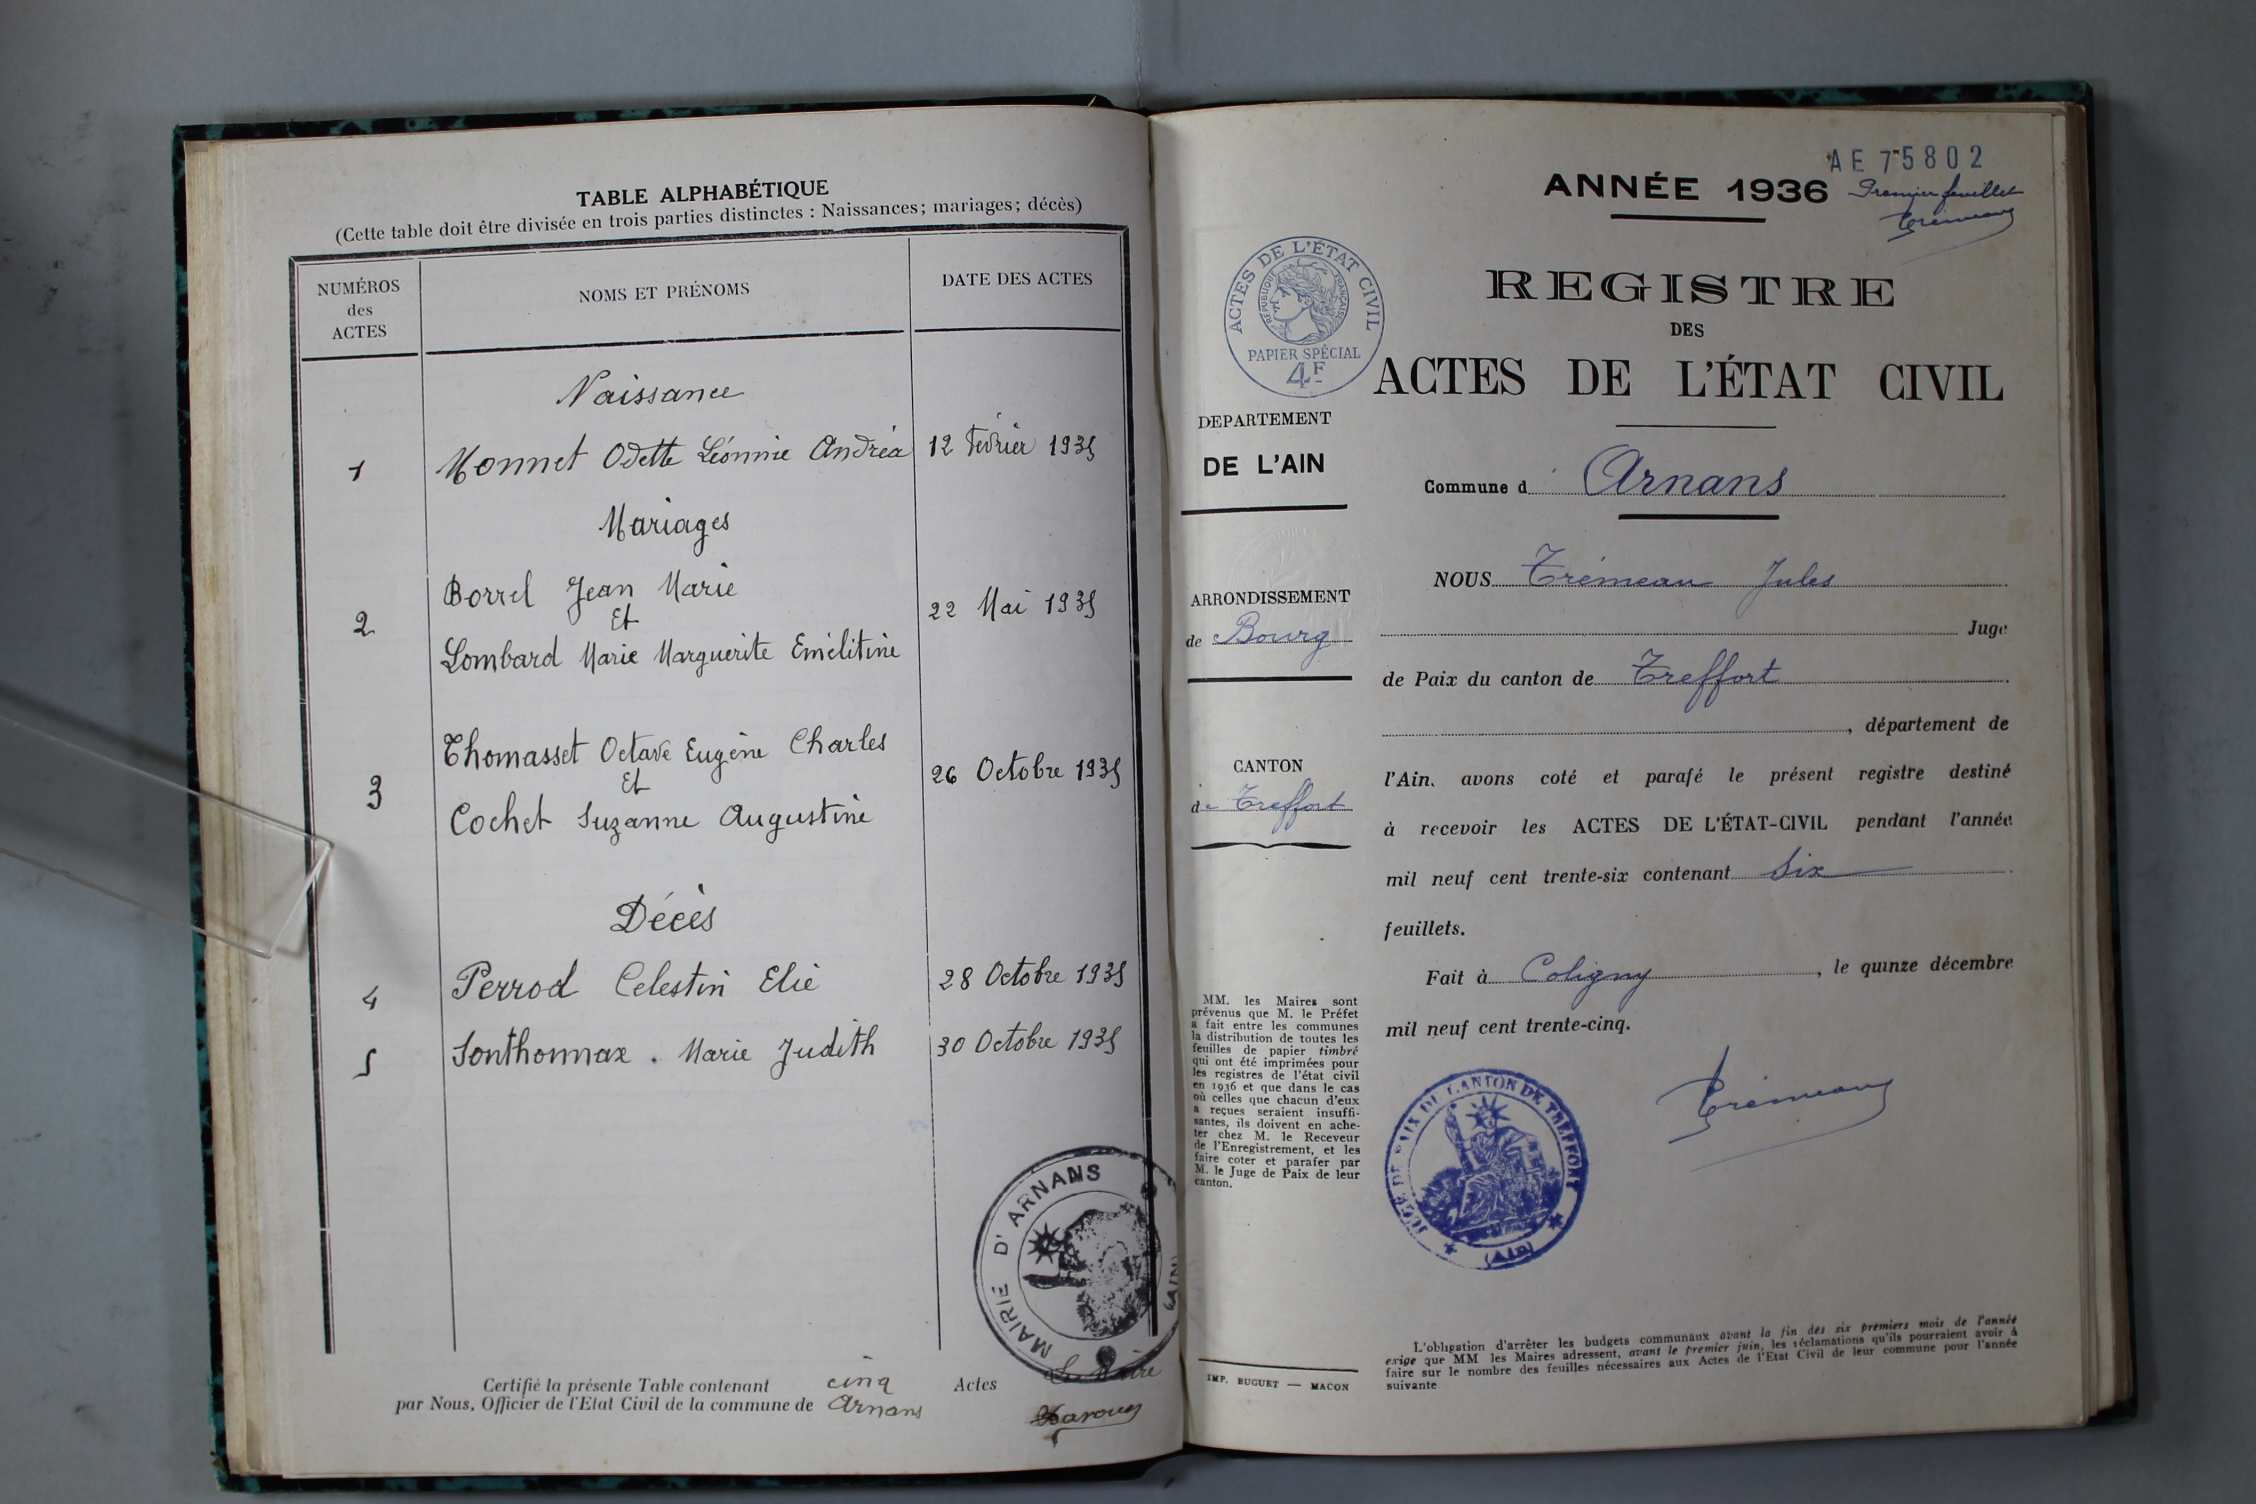 TABLE ALPHABÉTIQUE
(Cette table doit être divisée en trois parties distinctes : Naissances; mariages; décès)
NUMÉROS
des
ACTES
NOMS ET PRÉNOMS
DATE DES ACTES
Naissance
1 Monnet Odette Léonnie Andréa 12 Février 1935
Mariages
Borrel Jean Marie
2 Et 22 Mai 1935
Lombard Marie Marguerite Emélitine
Thomasset Octave Eugène Charles
3 Et 26 Octobre 1935
Cochet Suzanne Augustine
Décès
4 Perrod Celestin Elie 28 Octobre 1935
5 Sonthonnax . Marie Judith 30 Octobre 1935
MAIRIE D'ARNANS
(AIN)
Certifié la présente Table contenant cinq Actes
par Nous, Officier de l'Etat Civil de la commune de Arnans
Le Maire
AE 75802
ANNÉE 1936
Premier feuillet
Trémeau
ACTES DE L'ÉTAT CIVIL
RÉPUBLIQUE FRANÇAISE
PAPIER SPÉCIAL
4F
REGISTRE
DES
ACTES DE L'ÉTAT CIVIL
DEPARTEMENT
DE L'AIN
ARRONDISSEMENT
de Bourg
CANTON
de Treffort
Commune d Arnans
NOUS Trémeau Jules
Juge
de Paix du canton de Treffort
, département de
l'Ain, avons coté et parafé le présent registre destiné
à recevoir les ACTES DE L'ÉTAT-CIVIL pendant l'année
mil neuf cent trente-six contenant Six
feuillets.
Fait à Coligny, le quinze décembre
mil neuf cent trente-cinq.
Trémeau
JUGE DE PAIX DU CANTON DE TREFFORT
(Ain)
MM. les Maires sont
prévenus que M. le Préfet
a fait entre les communes
la distribution de toutes les
feuilles de papier timbré
qui ont été imprimées pour
les registres de l'état civil
en 1936 et que dans le cas
où celles que chacun d'eux
a reçues seraient insuffi-
santes, ils doivent en ache-
ter chez M. le Receveur
de l'Enregistrement, et les
faire coter et parafer par
M. le Juge de Paix de leur
canton.
IMP. BUGUET — MACON
L'obligation d'arrêter les budgets communaux avant la fin des six premiers mois de l'année
exige que MM les Maires adressent, avant le premier juin, les réclamations qu'ils pourraient avoir à
faire sur le nombre des feuilles nécessaires aux Actes de l'Etat Civil de leur commune pour l'année
suivante